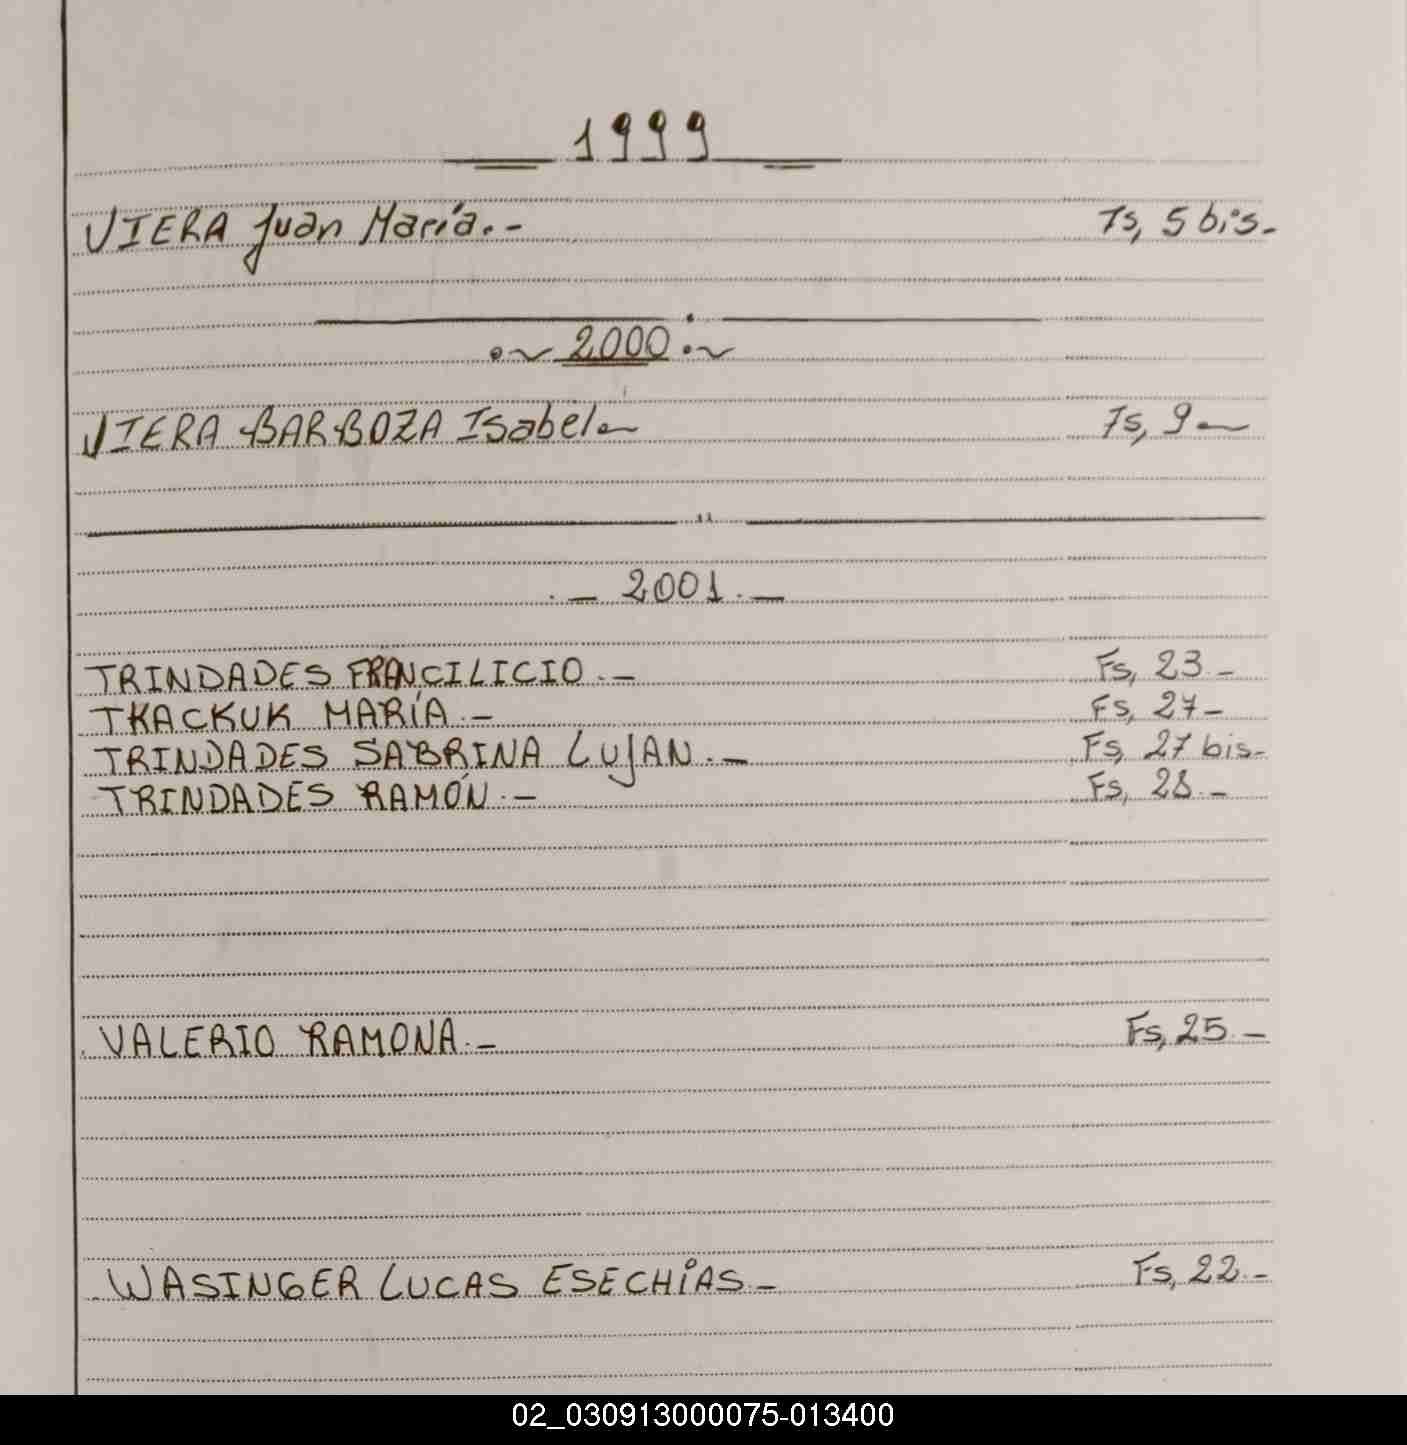 1999
VIERA Juan María.- Fs, 5 bis.-
.~ 2000 .~
VIERA BARBOZA Isabel.- Fs, 9 -
.- 2001 .-
TRINDADES FRANCILICIO.- Fs, 23.-
TKACKUK MARÍA.- Fs, 27-
TRINDADES SABRINA LUJAN.- Fs, 27 bis-
TRINDADES RAMÓN.- Fs, 28.-
VALERIO RAMONA.- Fs, 25.-
WASINGER LUCAS ESECHÍAS- Fs, 22.-
02_030913000075-013400